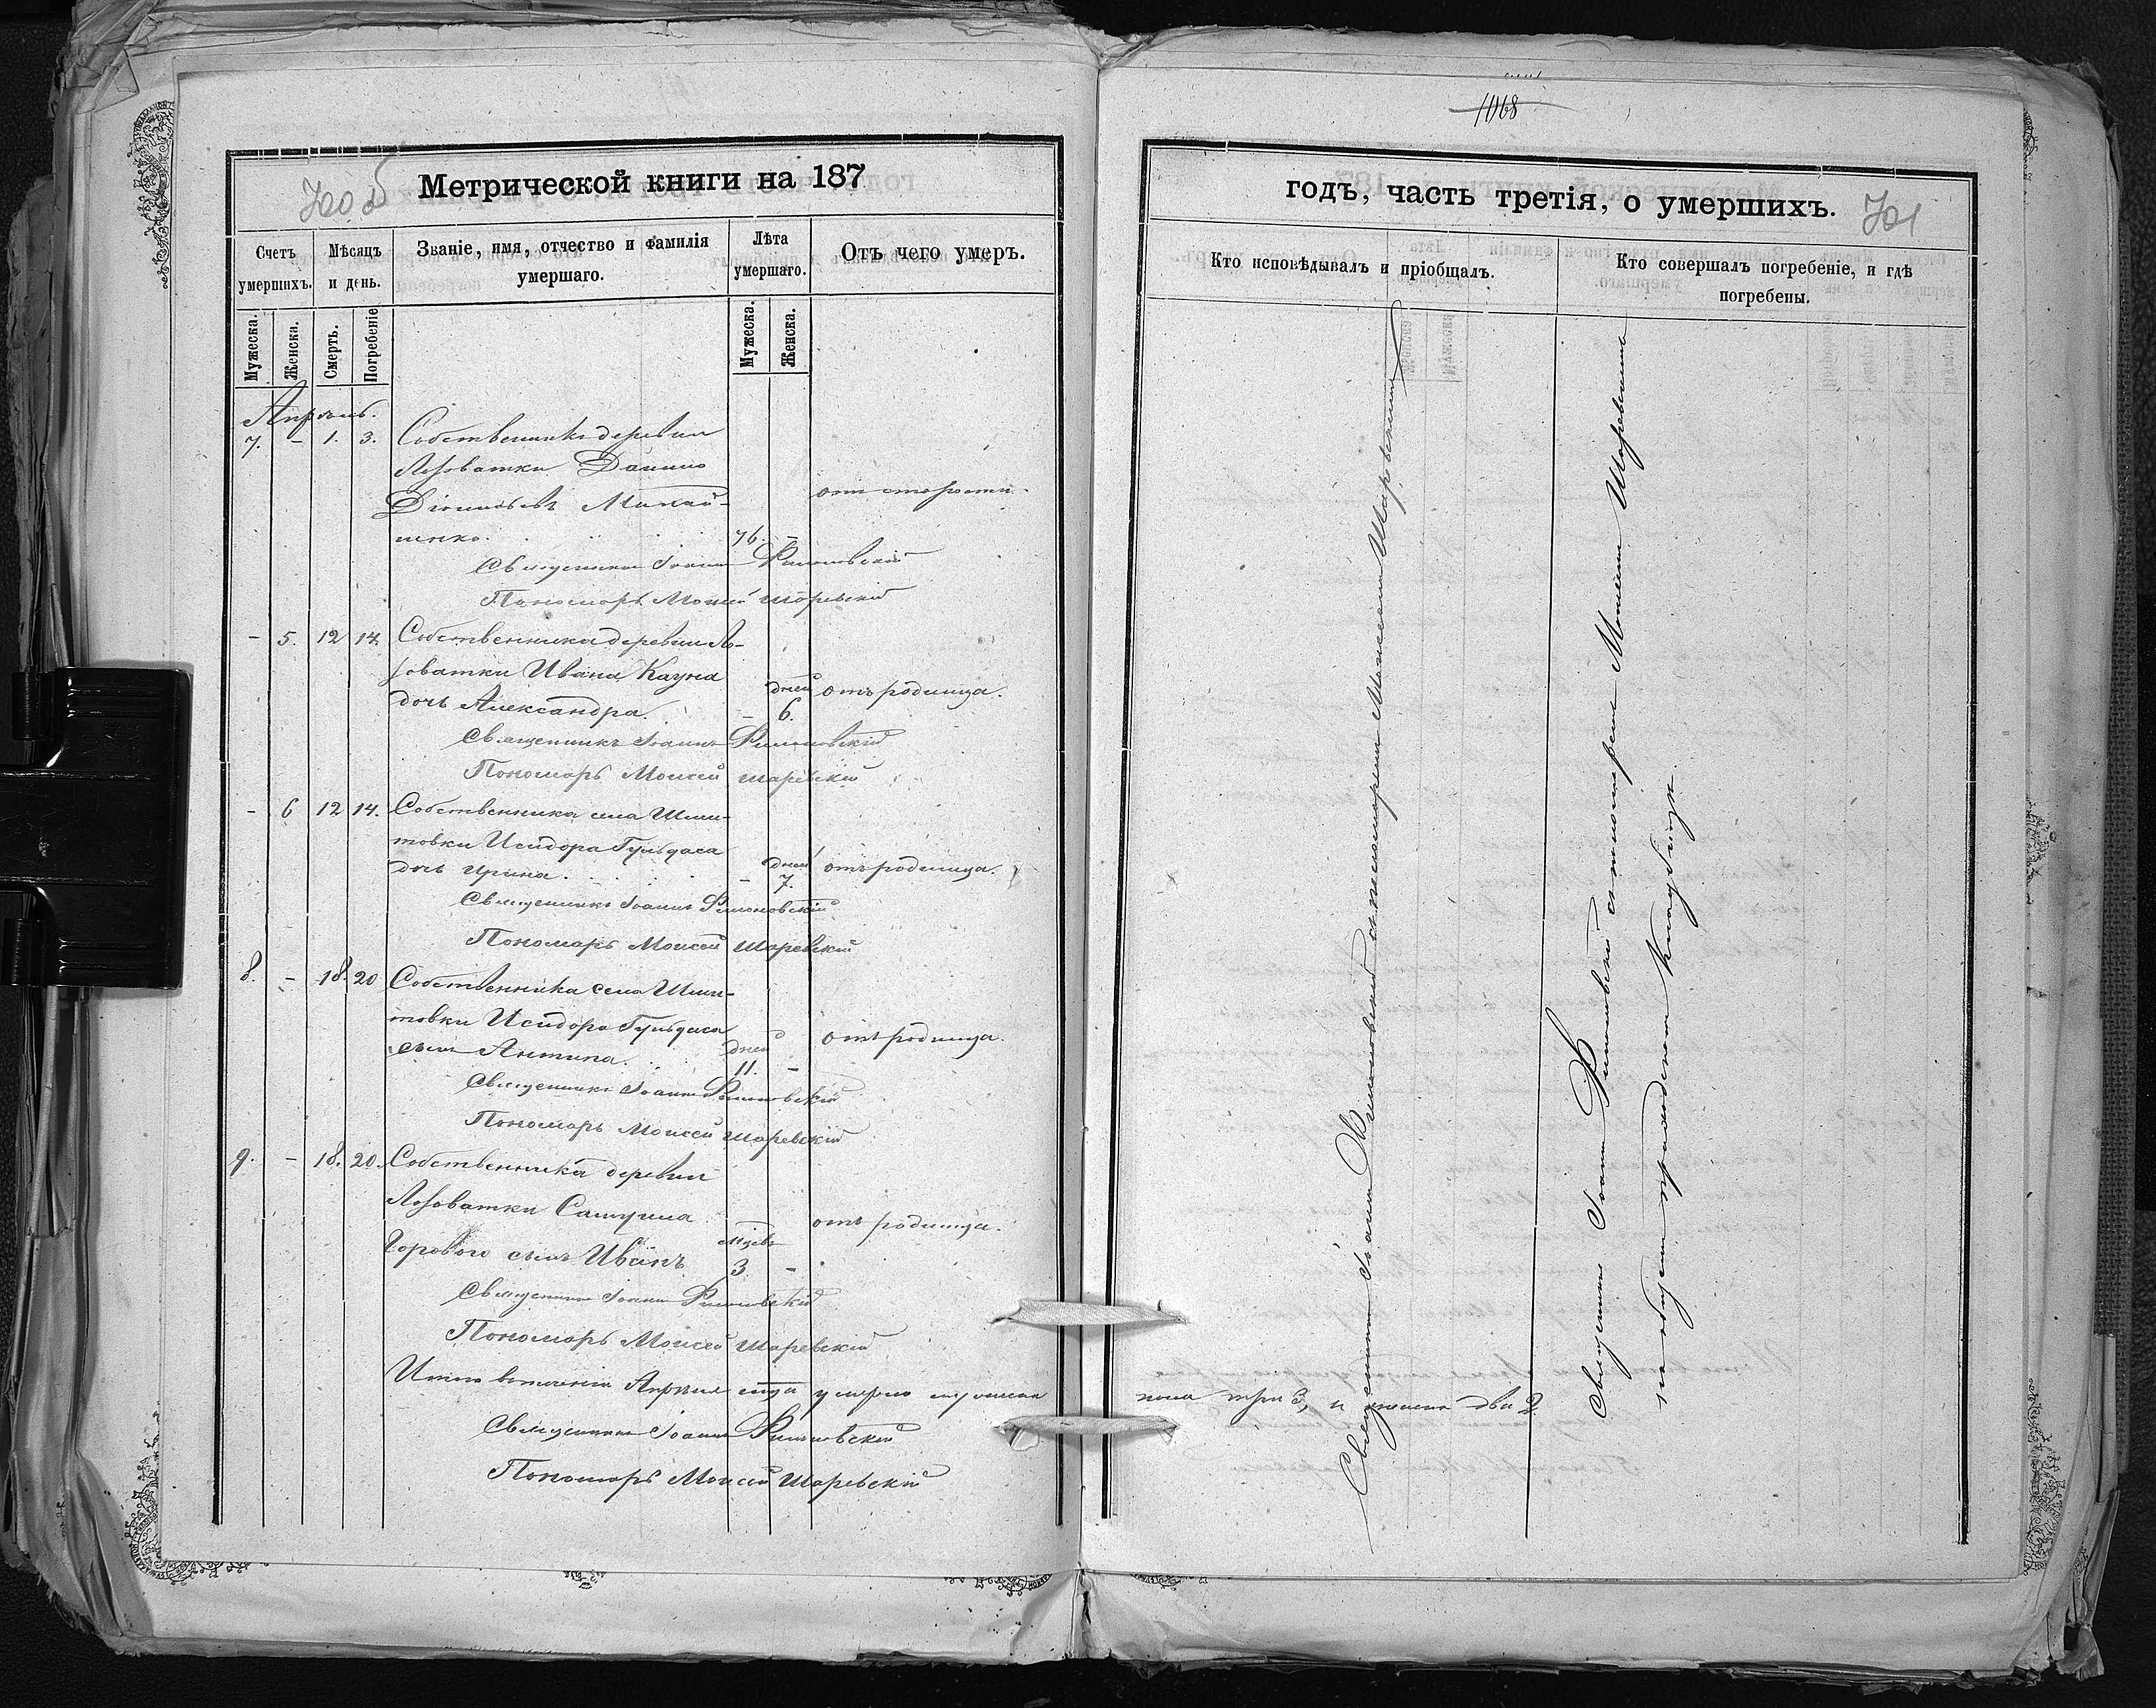 1068
700 об
Метрической книги на 187
Счетъ умершихъ.
Мѣсяцъ и день.
Званіе, имя, отчество и фамилія умершаго.
Лѣта умершаго.
Отъ чего умеръ.
Мужеска.
Женска.
Смерть.
Погребеніе
Мужеска.
Женска.
Апрѣль.
7. - 1. 3. Собственникъ деревни
Лозоватки Данило
отъ старости.
ненко. 76. -
Священникъ Іоаннъ Филоновскій
Пономарь Моисей Шаревскій
- 5. 12 14. Собственника деревни Ло-
зоватки Ивана Кауна
дочь Александра. - дней 6. отъ родимца.
Священникъ Іоаннъ Филоновскій
Пономарь Моисей Шаревскій
- 6 12 14. Собственника села
товки Исидора
дочь Ирина. - дней 7. отъ родимца.
Священникъ Іоаннъ Филоновскій
Пономарь Моисей Шаревскій
8. - 18. 20 Собственника села
товки Исидора
сынъ Антипа. дней 11. - отъ родимца.
Священникъ Іоаннъ Филоновскій
Пономарь Моисей Шаревскій
9. - 18. 20. Собственника деревни
Лозоватки Самуила
отъ родимца.
Горового сынъ Иванъ мѣсяц 3 -
Священникъ Іоаннъ Филоновскій
Пономарь Моисей Шаревскій
Итого въ теченіи Апрѣля мѣсяца умерло мужеска
Священникъ Іоаннъ Филоновскій
Пономарь Моисей Шаревскій
годъ, часть третія, о умершихъ.
701
Кто исповѣдывалъ и пріобщалъ.
Кто совершалъ погребеніе, и гдѣ погребены.
Священникъ Іоаннъ Филоновскій съ пономаремъ Моисеемъ Шаревскимъ
Священникъ Іоаннъ Филоновскій съ пономаремъ Моисеемъ Шаревскимъ
на общемъ приходскомъ кладбищѣ.
пола три 3, и женска два 2.